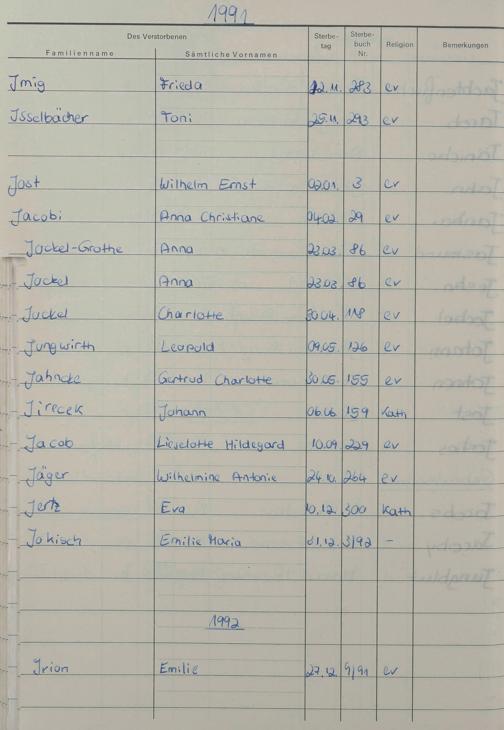 1991
Des Verstorbenen Sterbe-tag Sterbe-buch Nr. Religion Bemerkungen
Familienname Sämtliche Vornamen
Jmig Frieda 12.11. 283 ev
Jsselbächer Toni 25.11. 293 ev
Jost Wilhelm Ernst 02.01. 3 ev
Jacobi Anna Christiane 04.02. 29 ev
Jackel-Grothe Anna 23.03. 86 ev
Jackel Anna 23.03. 86 ev
Juckel Charlotte 30.04. 118 ev
Jungwirth Leopold 09.05. 126 ev
Jahncke Gertrud Charlotte 30.05. 155 ev
Jirecek Johann 06.06. 159 Kath
Jacob Lieselotte Hildegard 10.09 229 ev
Jäger Wilhelmine Antonie 24.10. 264 ev
Jertz Eva 10.12. 300 Kath
Jokisch Emilie Maria 31.12. 3/92 -
1992
Jrion Emilie 27.12. 9/91 ev